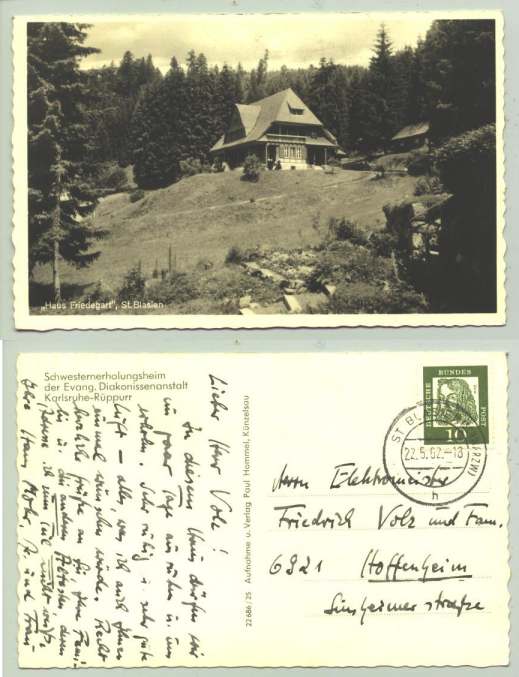 „Haus Friedegart", St. Blasien
Schwesternerholungsheim
der Evang. Diakonissenanstalt
Karlsruhe-Rüppurr
Lieber Herr Volz!
In diesem Haus dürfen wir
ein paar Tage aus ruhen u. uns
erholen. Sehr ruhig u. sehr gute
Luft – alles, was ich auch Ihnen
einmal wünschen würde. Recht
herzliche Grüße an Sie, Ihre Fami-
lie u. die anderen Ältesten, deren
ich nicht weiß.
Ihr Hans u. Frau
22686/25 Aufnahme u. Verlag Paul Hommel, Künzelsau
DEUTSCHE
BUNDES
POST
10
ST BL
(SCHWARZW)
22.5.62.-18
h
Herrn Elektromeister
Friedrich Volz und Fam.
6921 Hoffenheim
Sinsheimer straße